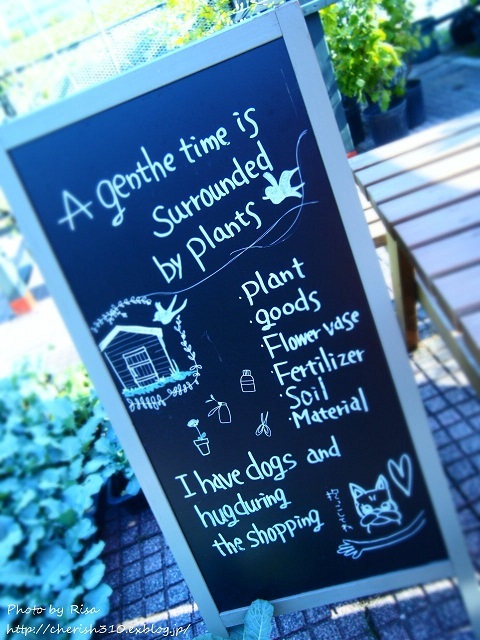 A genthe time is
Surrounded
by plants
· plant
· goods
· Flower vase
· Fertilizer
· Soil
· Material
I have dogs and
hug during
the shopping
Photo by Risa
http://cherish310.exblog.jp/